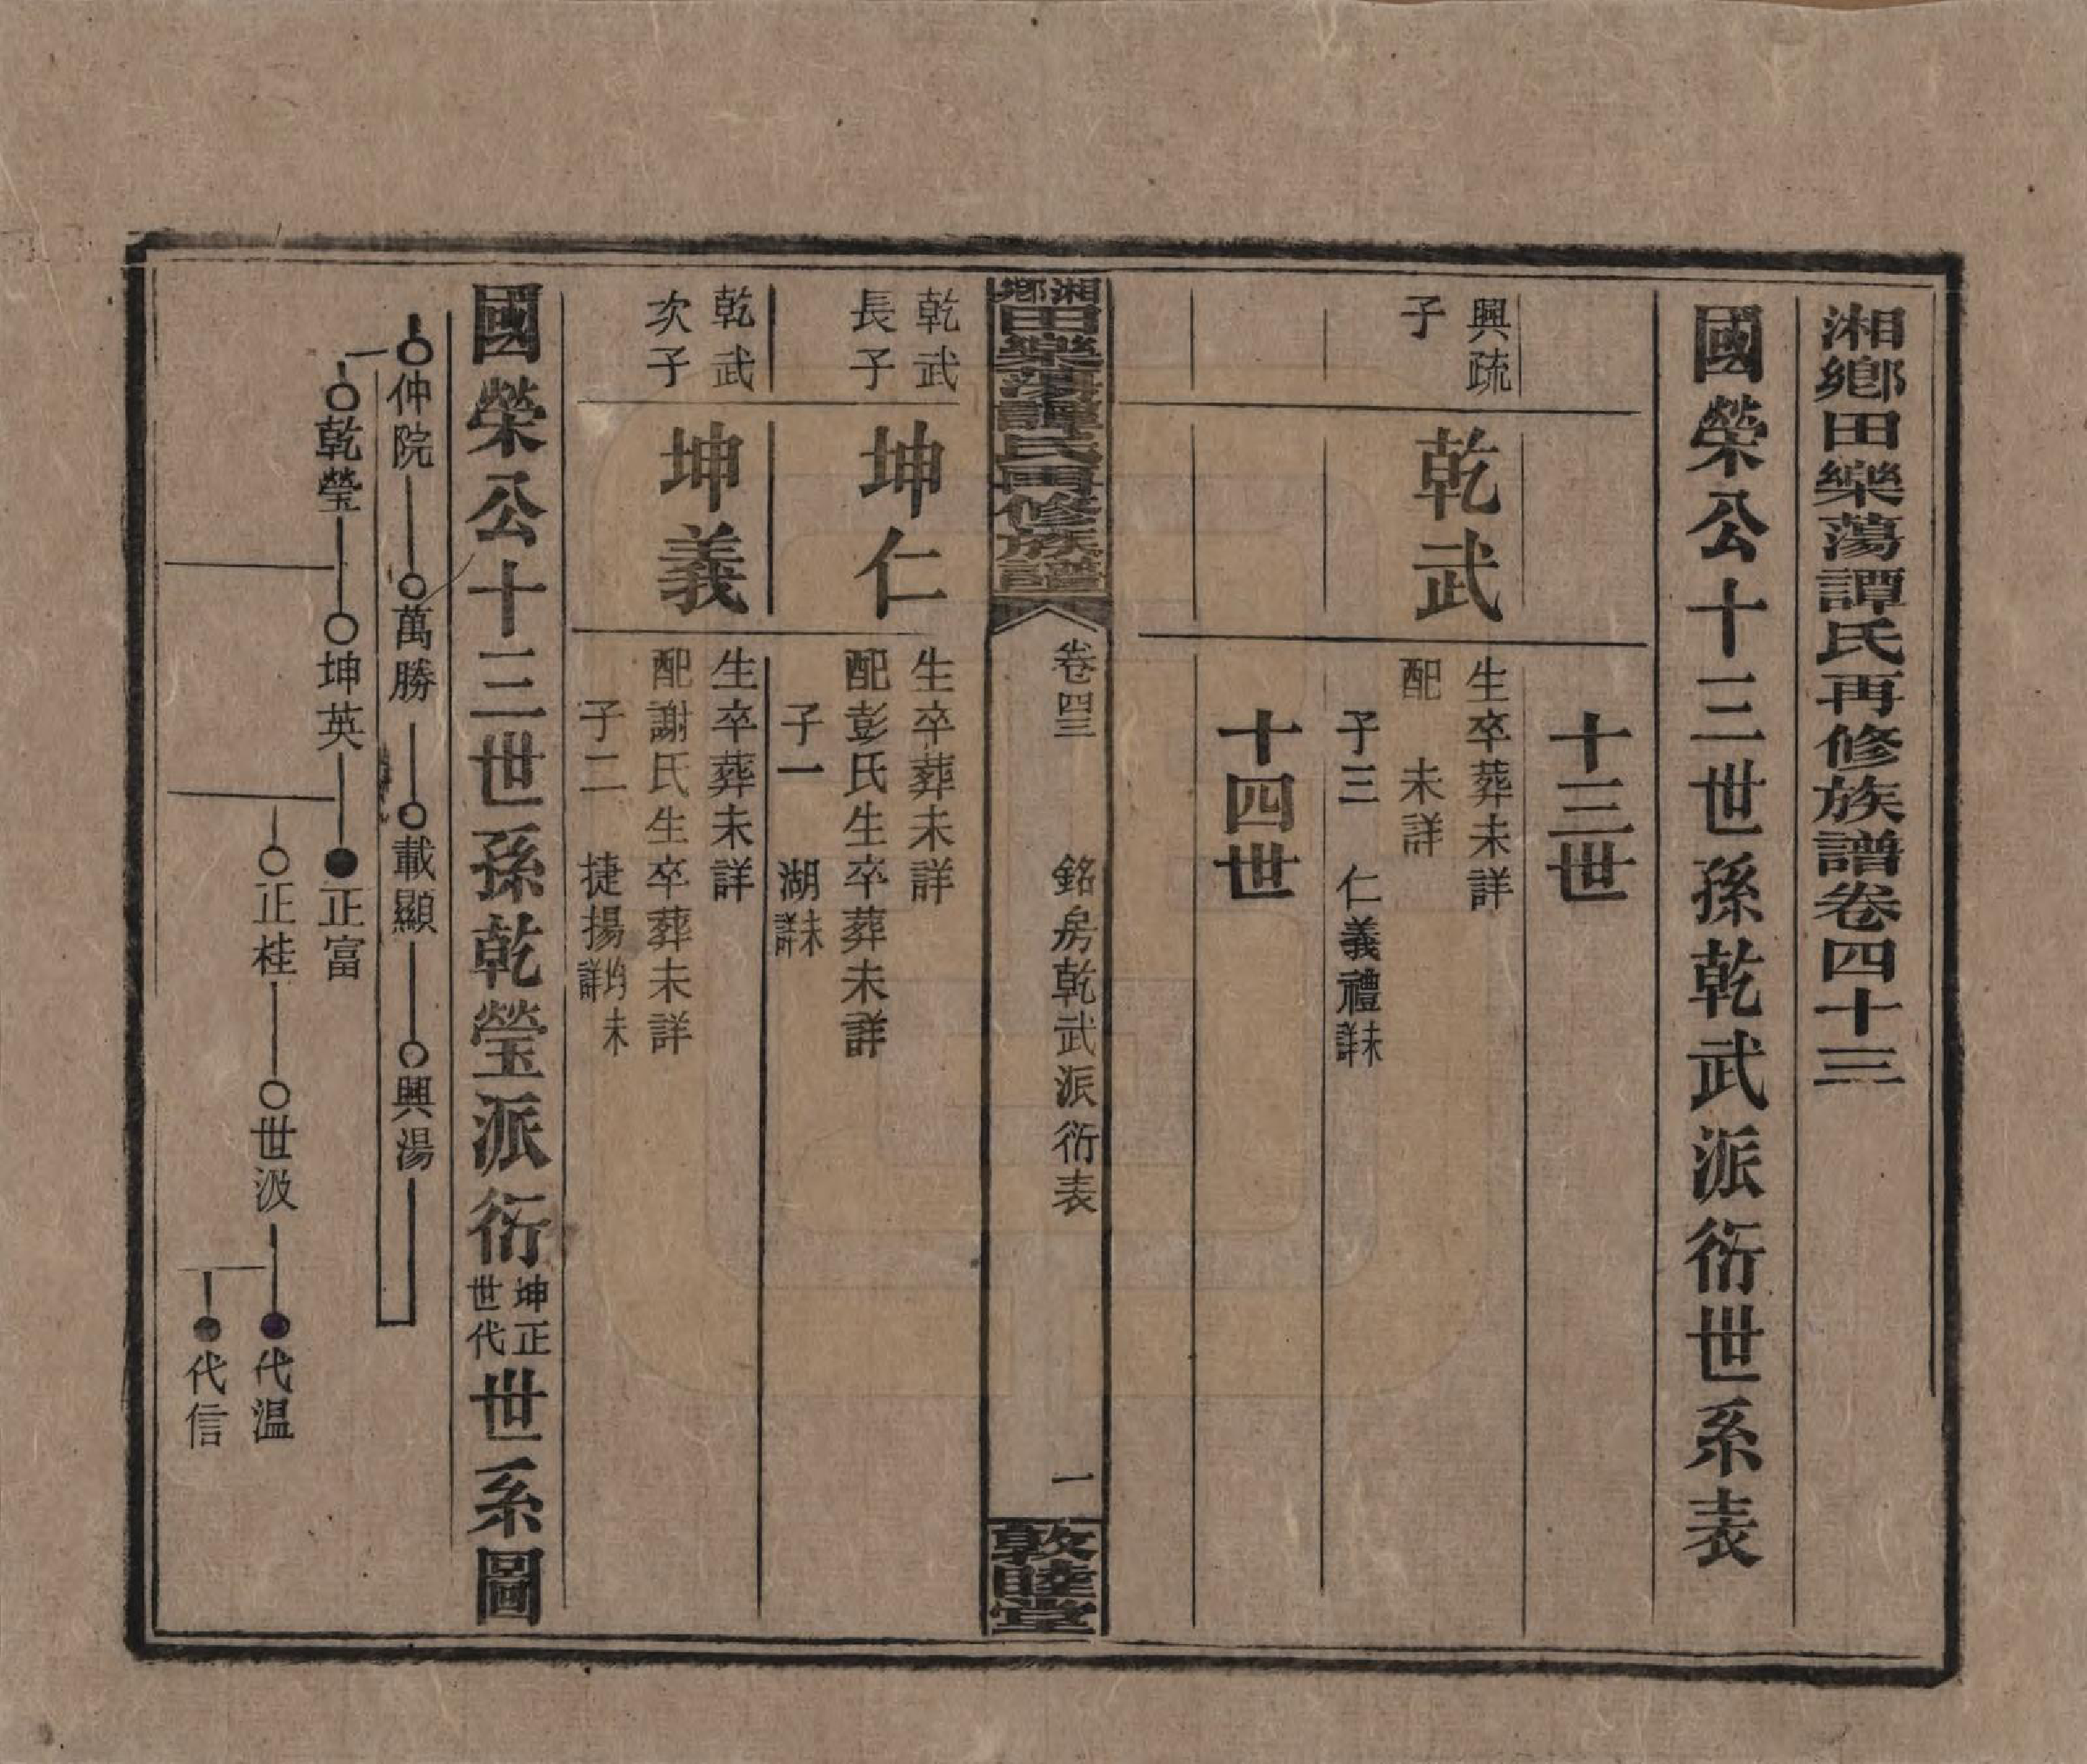 湘鄉田樂蕩譚氏再修族譜卷四十三
國榮公十三世孫乾武派衍世系表
十三世
興疏
子
乾武
生卒葬未詳
配　未詳
子三　仁義禮未詳
十四世
湘鄉田樂蕩譚氏再修族譜
卷四三
銘房乾武派衍表
一
敦睦堂
乾武
長子
坤仁
生卒葬未詳
配彭氏生卒葬未詳
子一　湖未詳
乾武
次子
坤義
生卒葬未詳
配謝氏生卒葬未詳
子二　捷揚均未詳
國榮公十三世孫乾瑩派衍坤正世代世系圖
仲院　萬勝　載顯　興湯
乾瑩　坤英　正富
正桂　世汲　代温
代信